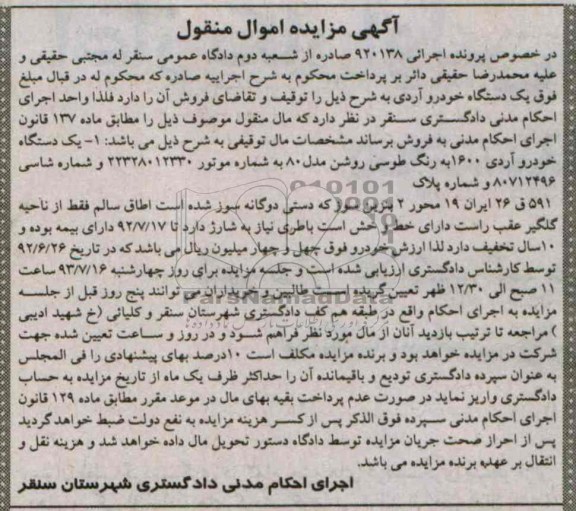 آگهی مزایده اموال منقول
در خصوص پرونده اجرائی ۹۲۰۱۳۸ صادره از شعبه دوم دادگاه عمومی سنقر له مجتبی حقیقی و
علیه محمدرضا حقیقی دائر بر پرداخت محکوم به شرح اجراییه صادره که محکوم له در قبال مبلغ
فوق یک دستگاه خودرو آردی به شرح ذیل را توقیف و تقاضای فروش آن را دارد فلذا واحد اجرای
احکام مدنی دادگستری سنقر در نظر دارد که مال منقول موصوف ذیل را مطابق ماده ۱۳۷ قانون
اجرای احکام مدنی به فروش برساند مشخصات مال توقیفی به شرح ذیل می باشد: ۱- یک دستگاه
خودرو آردی ۱۶۰۰به رنگ طوسی روشن مدل۸۰ به شماره موتور ۲۲۳۲۸۰۱۲۳۳۰ و شماره شاسی
۸۰۷۱۲۴۹۶ و شماره پلاک
۵۹۱ ق ۲۶ ایران ۱۹ محور ۲ بنزین سوز که دستی دوگانه سوز شده است اطاق سالم فقط از ناحیه
گلگیر عقب راست دارای خط و خش است باطری نیاز به شارژ دارد تا ۹۲/۷/۱۷ دارای بیمه بوده و
۱۰سال تخفیف دارد لذا ارزش خودرو فوق چهل و چهار میلیون ریال می باشد که در تاریخ ۹۲/۶/۲۶
توسط کارشناس دادگستری ارزیابی شده است و جلسه مزایده برای روز چهارشنبه ۹۳/۷/۱۶ ساعت
۱۱ صبح الی ۱۲/۳۰ ظهر تعیین گریده است طالبین و خریداران می توانند پنج روز قبل از جلسه
مزایده به اجرای احکام واقع در طبقه هم کف دادگستری شهرستان سنقر و کلیائی (خ شهید ادیبی
) مراجعه تا ترتیب بازدید آنان از مال مورد نظر فراهم شود و در روز و ساعت تعیین شده جهت
شرکت در مزایده خواهد بود و برنده مزایده مکلف است ۱۰درصد بهای پیشنهادی را فی المجلس
به عنوان سپرده دادگستری تودیع و باقیمانده آن را حداکثر ظرف یک ماه از تاریخ مزایده به حساب
دادگستری واریز نماید در صورت عدم پرداخت بقیه بهای مال در موعد مقرر مطابق ماده ۱۲۹ قانون
اجرای احکام مدنی سپرده فوق الذکر پس از کسر هزینه مزایده به نفع دولت ضبط خواهد گردید
پس از احراز صحت جریان مزایده توسط دادگاه دستور تحویل مال داده خواهد شد و هزینه نقل و
انتقال بر عهده برنده مزایده می باشد.
اجرای احکام مدنی دادگستری شهرستان سنقر
ParsNamadData